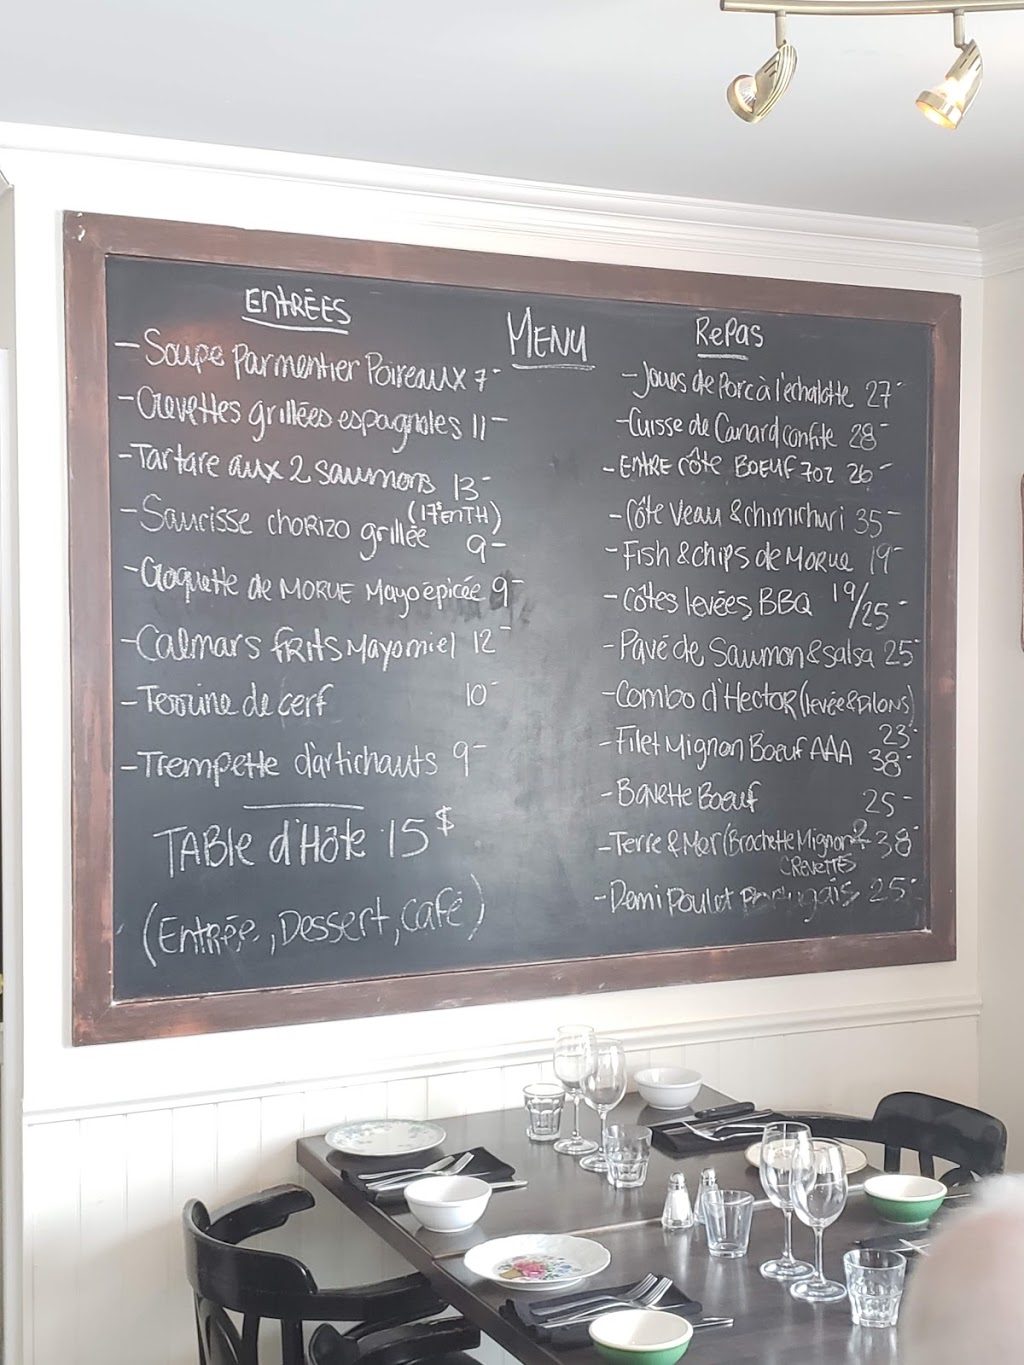 MENU
ENTRÉES
- Soupe Parmentier Poireaux 7-
- Crevettes grillées espagnoles 11-
- Tartare aux 2 saumons 13-
(17$ en TH)
- Saucisse chorizo grillée 9-
- Croquette de MORUE Mayo épicée 9-
- Calmars frits Mayo miel 12-
- Terrine de cerf 10-
- Trempette d'artichauts 9-
TABLE d'Hôte 15$
(Entrée, Dessert, café)
RePas
- Joues de Porc à l'échalotte 27-
- Cuisse de Canard confite 28-
- ENTRE côte BOEUF 7oz 26-
- Côte Veau & chimichuri 35-
- Fish & chips de MORUE 19-
- Côtes levées BBQ 19/25-
- Pavé de Saumon & salsa 25-
- Combo d'Hector (levée & Pilons)
23-
- Filet Mignon Boeuf AAA 38-
- Bavette Boeuf 25-
- Terre & Mer (Brochette Mignon & 2 38-
CREVETTES
- Demi Poulet Portugais 25-